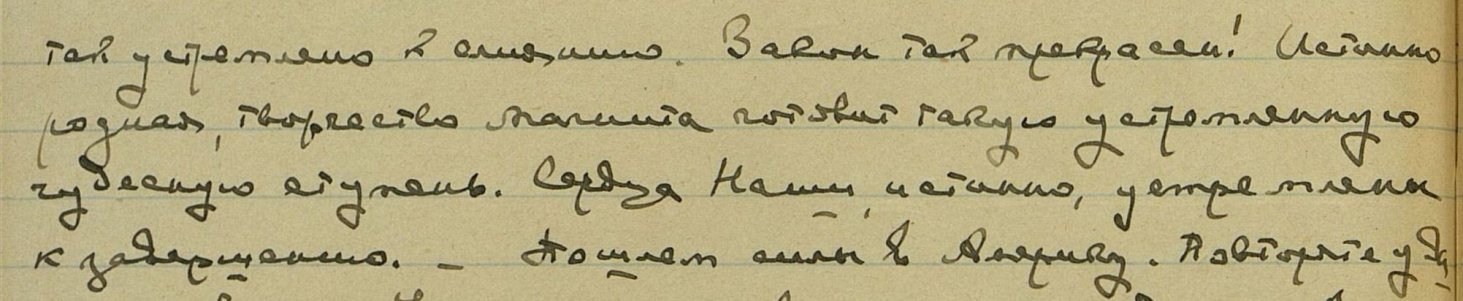 так устремлено к слиянию. Закон так прекрасен! Истинно
родная, творчество магнита готовит такую устремленную
чудесную ступень. Сердца Наши, истинно, устремлены
к завершению. – Пошлем силы в Америку. Повторяю